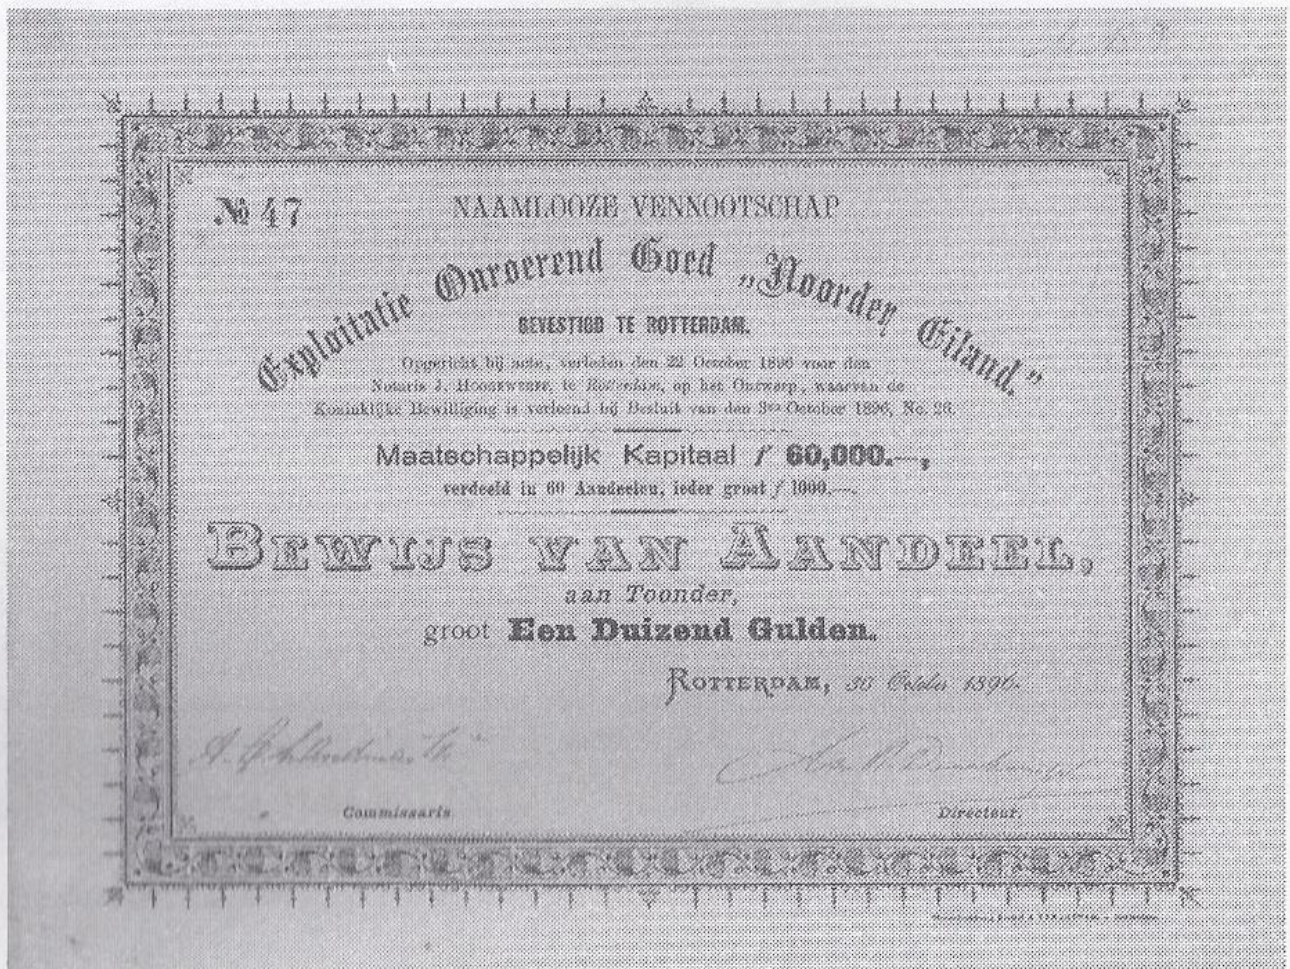 № 47
NAAMLOOZE VENNOOTSCHAP
Exploitatie Onroerend Goed „Noorder Eiland.”
GEVESTIGD TE ROTTERDAM.
Opgericht bij acte, verleden den 22 October 1896 voor den
Notaris J. te Rotterdam, op het Ontwerp, waarvan de
Koninklijke Bewilliging is verleend bij Besluit van den 3den October 1896, No. 26.
Maatschappelijk Kapitaal f 60,000.—,
verdeeld in 60 Aandeelen, ieder groot f 1000.—.
BEWIJS VAN AANDEEL,
aan Toonder,
groot Een Duizend Gulden.
ROTTERDAM, 30 October 1896.
Commissaris
Directeur.